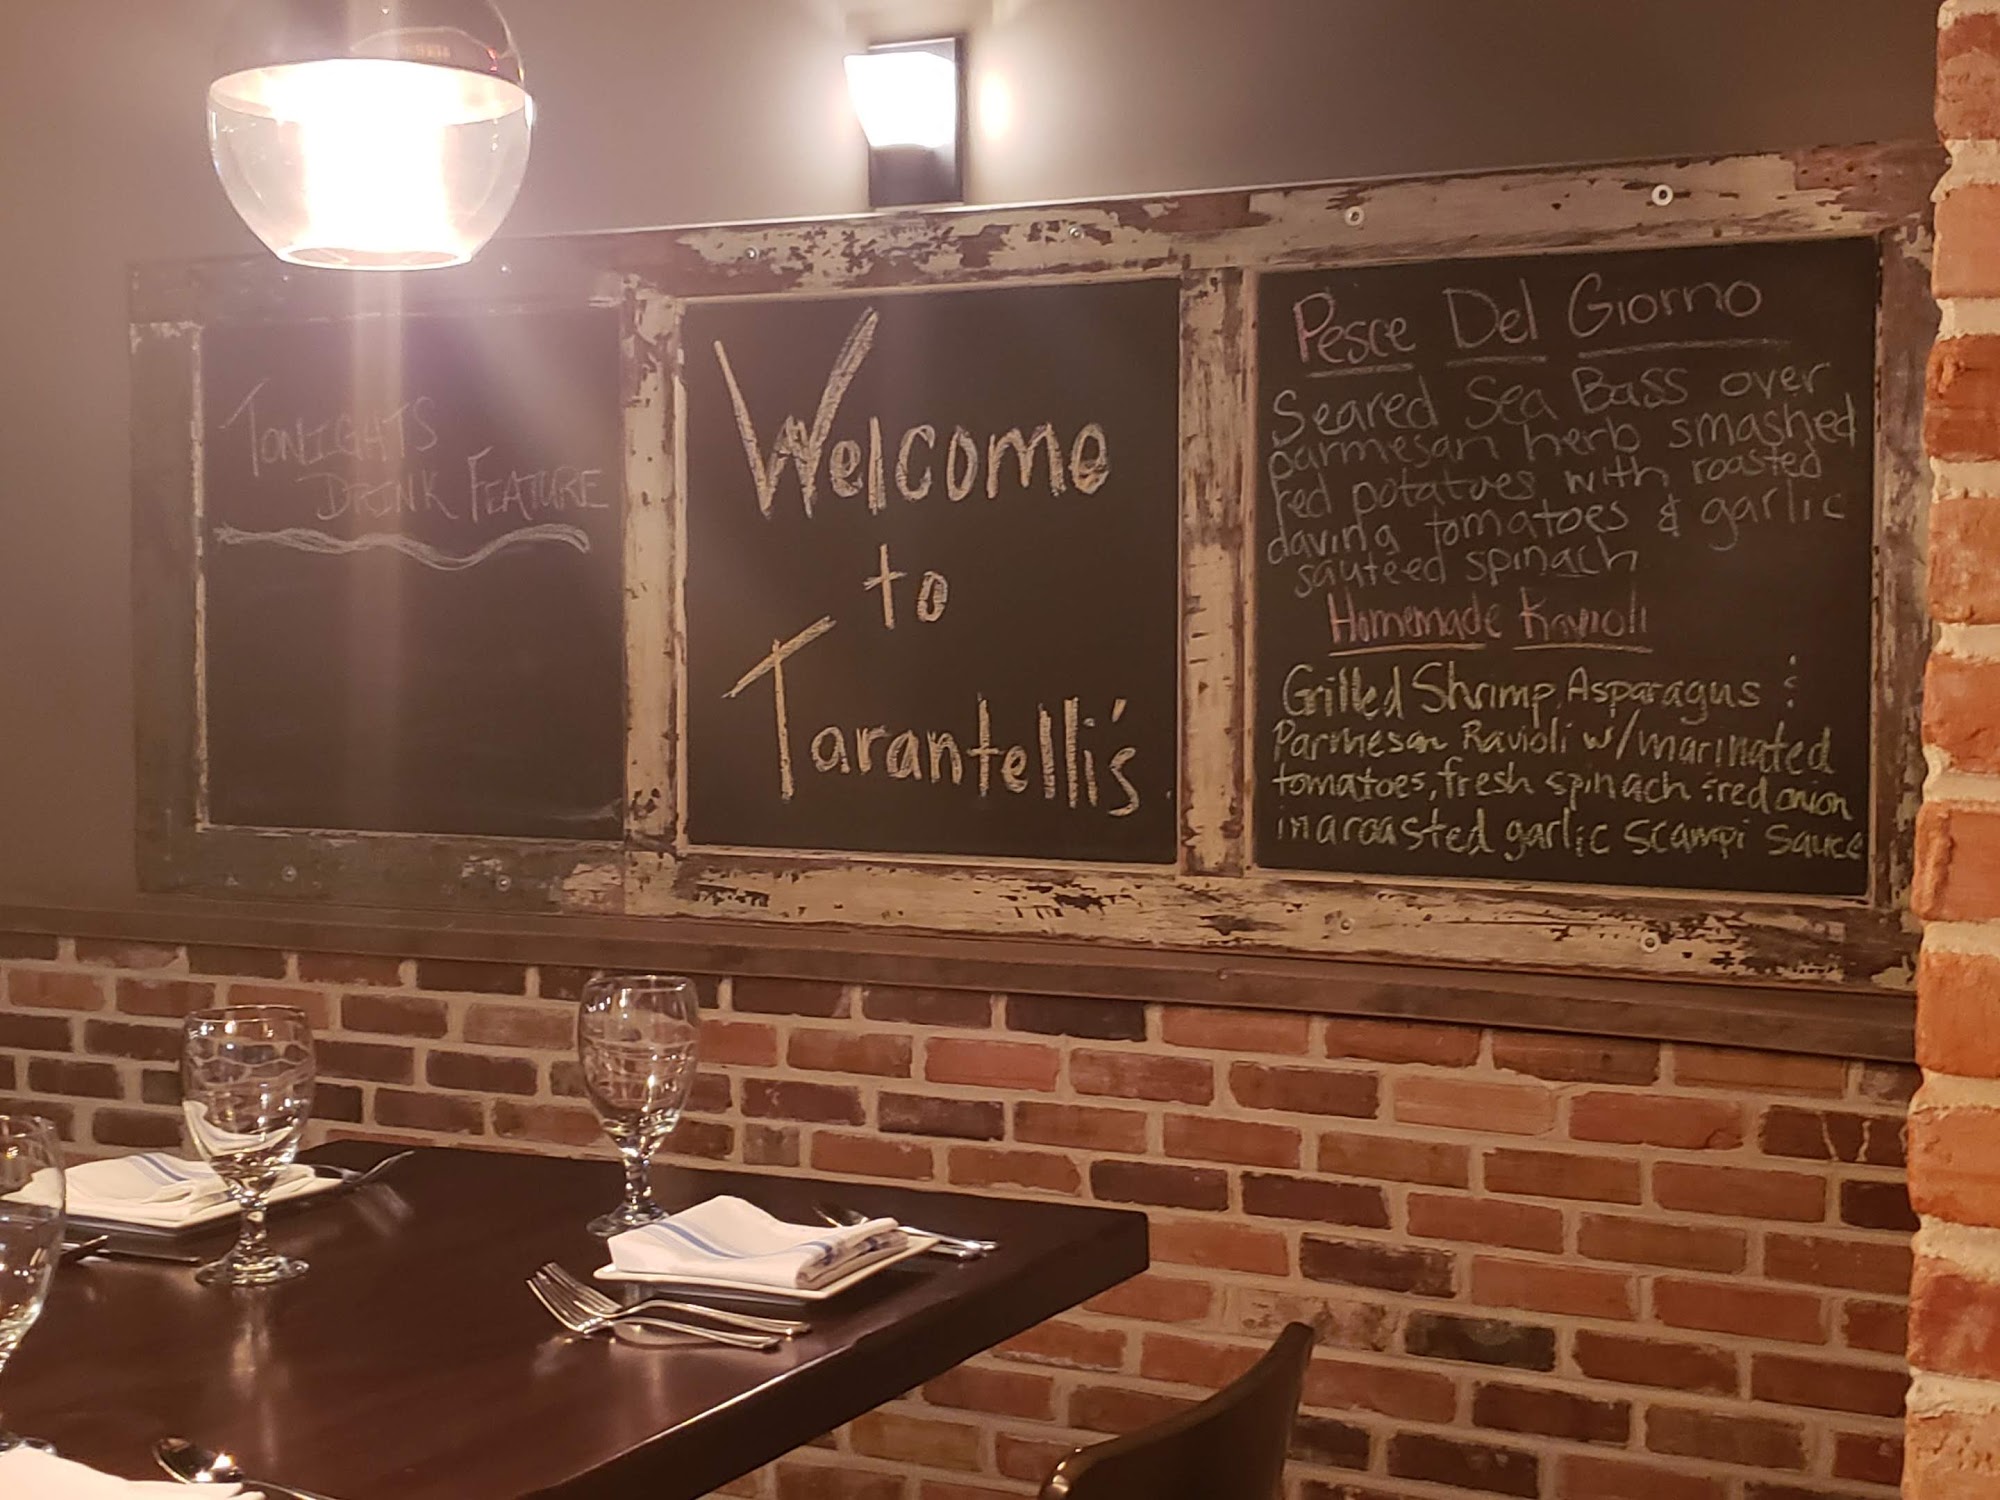 TONIGHTS
DRINK FEATURE
Welcome
to
Tarantelli's
Pesce Del Giorno
Seared Sea Bass over
parmesan herb smashed
red potatoes with roasted
davina tomatoes & garlic
sauteed spinach
Homemade Ravioli
Grilled Shrimp, Asparagus &
Parmesan Ravioli w/marinated
tomatoes, fresh spinach & red onion
in a roasted garlic scampi sauce